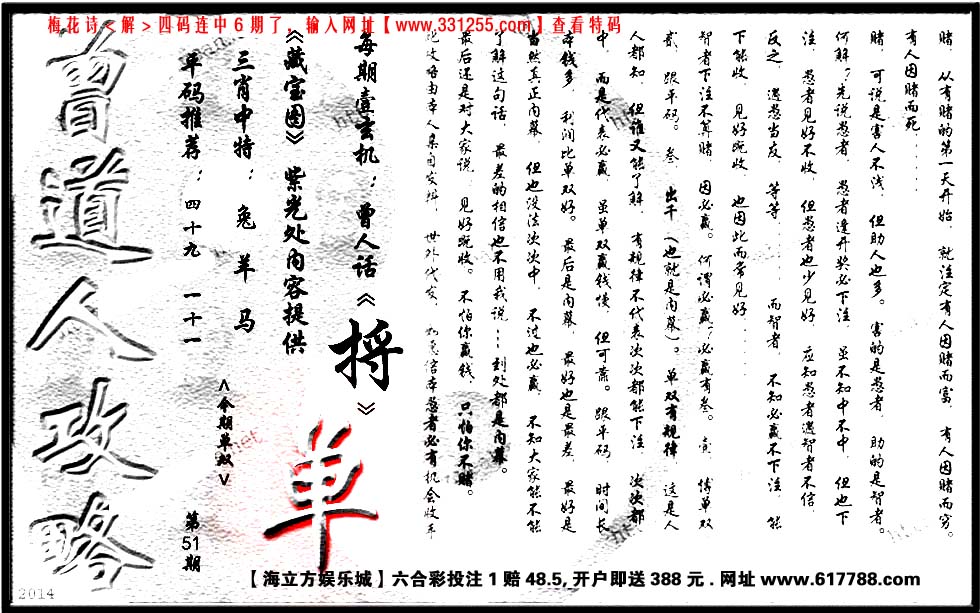 梅花诗<解>四码连中6期了,输入网址【www.331255.com】查看特码
赌 从有赌的第一天开始 就注定有人因赌而富 有人因赌而穷。
有人因赌而死......
赌 可说是害人不浅 但助人也多。害的是愚者 助的是智者。
何解?先说愚者 愚者逢开奖必下注 虽不知中不中 但也下
注 愚者见好不收 但愚者也少见好 应知愚者遇智者不信
反之 遇愚当友 等等...... 而智者 不知必赢不下注 能
下能收 见好就收 也因此而常见好...
智者下注不算赌 因必赢。何谓必赢?必赢有叁。壹 博单双
贰 跟平码。叁 出千(也就是内幕)。单双有规律 这是人
人都知 但谁又能了解 有规律不代表次次都能下注 次次都
中 而是代表必赢 虽单双赢钱慢 但可靠。跟平码 时间长
本钱多 利润比单双好。最后是内幕 最好也是最差 最好是
当然真正内幕 但也没法次次中 不过也必赢 不知大家能不能
了解这句话 最差的相信也不用我说...到处都是内幕。
最后还是对大家说 见好就收。不怕你赢钱、只怕你不赌。
每期壹玄机:曾人话《捋》
《藏宝图》紫光处内容提供
三肖中特: 兔 羊 马
单码推荐:四十九 一十一
<今期单双>
单
第51期
曾道人攻略
2014
【海立方娱乐城】六合彩投注1赔48.5,开户即送388元.网址www.617788.com